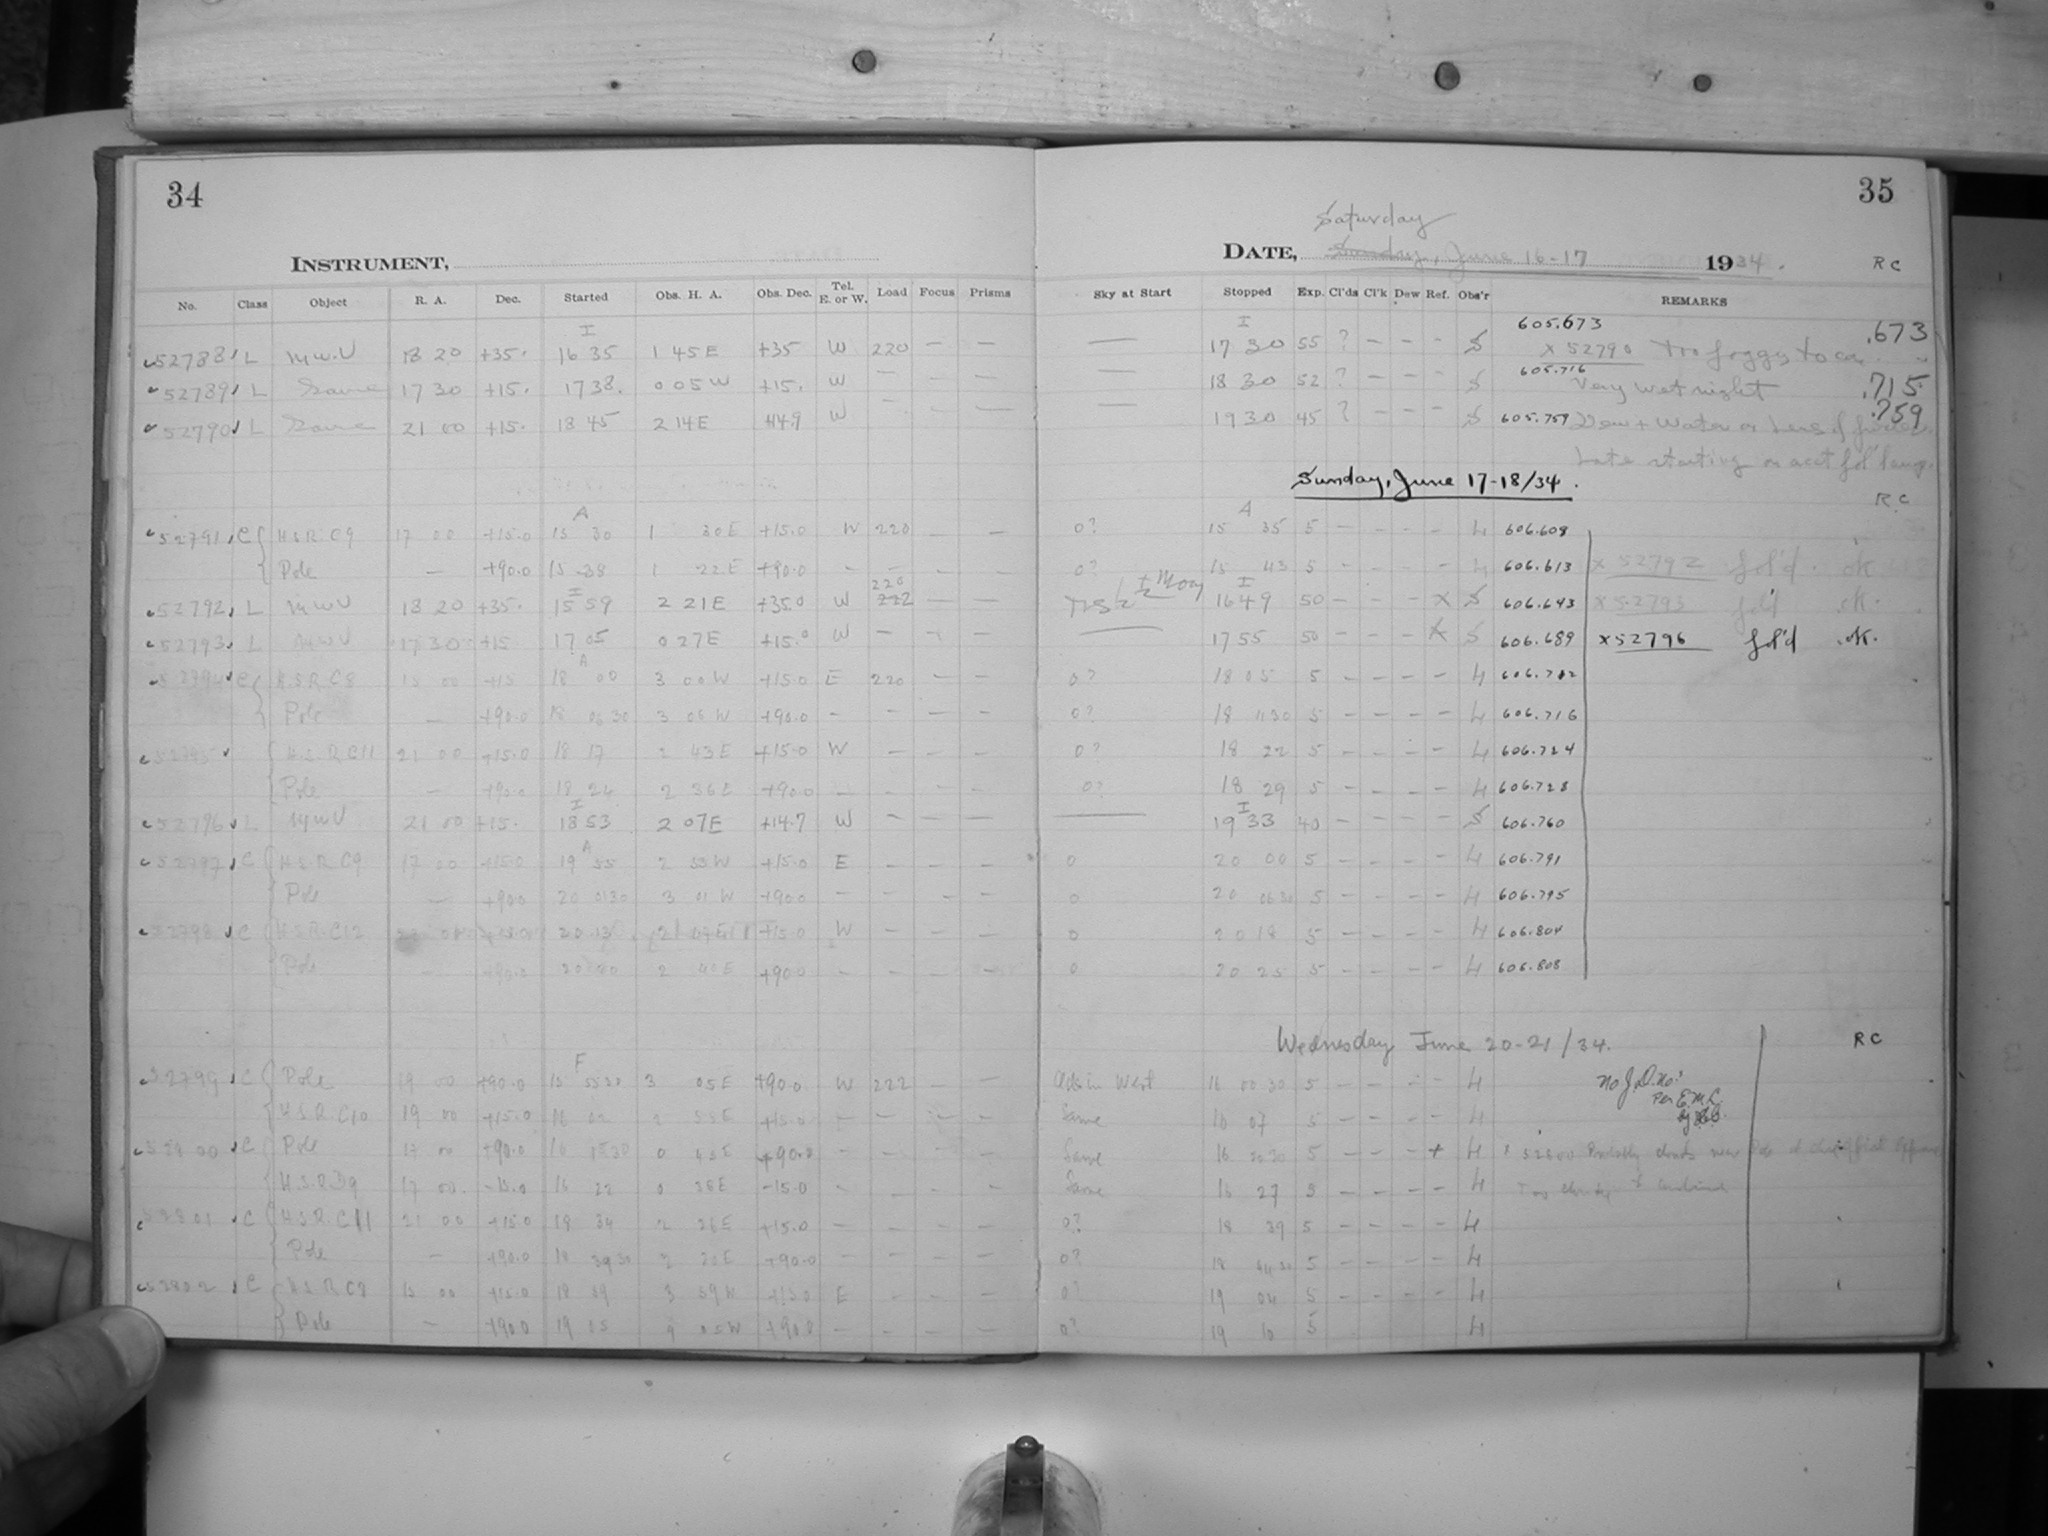 34
35
Saturday
INSTRUMENT,
DATE, Sunday, June 16-17 1934. RC
No. Class Object R. A. Dec. Started Obs. H. A. Obs. Dec. Tel. E. or W. Load Focus Prisms Sky at Start Stopped Exp. Cl'ds Cl'k Dew Ref. Obs'r REMARKS
I I 605.673 .673
52788 L M.W.U 18 20 +35. 16 35 1 45 E +35 W 220 — — — 17 30 55 ? – – – S x 52790 Too foggy to
605.716
52789 L Same 17 30 +15. 17 38. 0 05 W +15. W — — — 18 30 52 ? – – – S Very wet night .715
52790 L Same 21 00 +15. 18 45 2 14 E +14.9 W — — — 19 30 45 ? – – – S 605.759 Dew + Water on Lens .759
Late starting on acct
Sunday, June 17-18/34.
RC
A A
52791 C H.S.R. C9 17 00 +15.0 15 30 1 30 E +15.0 W 220 — — 0? 15 35 5 – – – – 4 606.608
Pole — +90.0 15 38 1 22 E +90.0 – – – – 0? 15 43 5 – – – – 4 606.613 x 52792 fol'd. ok
I 220 I
52792 L M W U 18 20 +35. 15 59 2 21 E +35.0 W 222 — — 16 49 50 – – – X S 606.643 x 52793 fol'd ok.
52793 L M W U 17 30 +15 17 05 0 27 E +15.0 W – – – — 17 55 50 – – – X S 606.689 x 52796 fol'd .ok.
A
52794 C H.S.R. C8 15 00 +15 18 00 3 00 W +15.0 E 220 – – 0? 18 05 5 – – – – 4 606.712
Pole — +90.0 18 06 30 3 06 W +90.0 – – – – 0? 18 11 30 5 – – – – 4 606.716
52795 H.S.R. C11 21 00 +15.0 18 17 2 43 E +15.0 W – – – 0? 18 22 5 – – – – 4 606.724
Pole — +90.0 18 24 2 36 E +90.0 – – – – 0? 18 29 5 – – – – 4 606.728
I I
52796 L M W U 21 00 +15. 18 53 2 07 E +14.7 W – – – — 19 33 40 – – – – S 606.760
A
52797 C H.S.R. C9 17 00 +15.0 19 55 2 55 W +15.0 E – – – 0 20 00 5 – – – – 4 606.791
Pole — +90.0 20 01 30 3 01 W +90.0 – – – – 0 20 06 30 5 – – – – 4 606.795
52798 C H.S.R. C12 20 13 +15.0 W – – – 0 20 18 5 – – – – 4 606.804
Pole — +90.0 20 20 2 40 E +90.0 – – – – 0 20 25 5 – – – – 4 606.808
Wednesday June 20-21/34. RC
F
52799 C Pole 19 00 +90.0 15 55 30 3 05 E +90.0 W 222 — — Clds in West 16 00 30 5 – – – – 4 No J.D. no.s
per E.M.L.
H.S.R. C10 19 00 +15.0 16 02 2 58 E +15.0 – – – – Same 16 07 5 – – – – 4
52800 C Pole 17 00 +90.0 16 15 30 0 45 E +90.0 – – – – Same 16 20 30 5 – – – + 4 52800 Probably clouds near Pole
H.S.R. D9 17 00. -15.0 16 22 0 38 E -15.0 – – – – Same 16 27 5 – – – – 4 Too cloudy to continue
52801 C H.S.R. C11 21 00 +15.0 18 34 2 26 E +15.0 – – – – 0? 18 39 5 – – – – 4
Pole — +90.0 18 39 30 2 20 E +90.0 – – – – 0? 18 44 30 5 – – – – 4
52802 C H.S.R. C8 15 00 +15.0 18 59 3 59 W +15.0 E – – – 0? 19 04 5 – – – – 4
Pole — +90.0 19 05 4 05 W +90.0 – – – – 0? 19 10 5 4